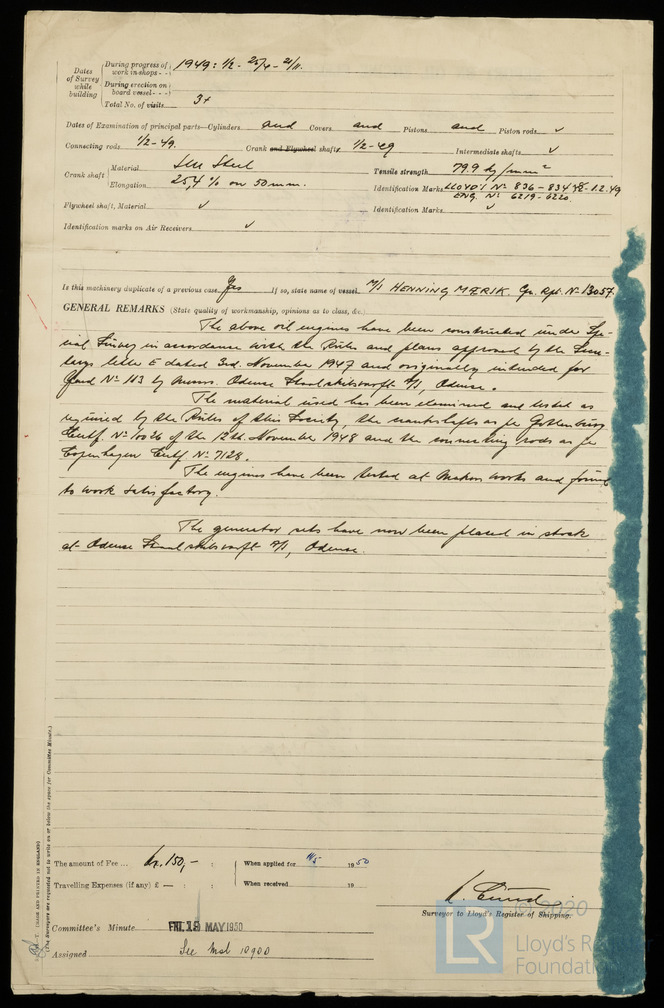 Dates of Survey while building
During progress of work in shops - - 1949: 1/2 - 25/4 - 21/11.
During erection on board vessel - - -
Total No. of visits 3+
Dates of Examination of principal parts—Cylinders and Covers and Pistons and Piston rods ✓
Connecting rods 1/2-49. Crank and Flywheel shafts 1/2-49 Intermediate shafts ✓
Crank shaft Material Steel Tensile strength 79.9 kg/mm²
Elongation 25,4 % on 50 mm. Identification Marks LLOYD'S No 836 - 834 1.2.49
ENG. No 6219-6220
Flywheel shaft, Material ✓ Identification Marks ✓
Identification marks on Air Receivers ✓
Is this machinery duplicate of a previous case Yes If so, state name of vessel M/S HENNING MÆRSK Rpt. No 13057.
GENERAL REMARKS (State quality of workmanship, opinions as to class, &c.
The above oil engines have been constructed under Spe-
cial Survey in accordance with the Rules and plans approved by the Secre-
tarys letter E dated 3rd. November 1947 and originally intended for
Yard No 113 by Messrs. Odense Staalskibsværft A/S, Odense.
The material used has been examined and tested as
required by the Rules of this Society, the crankshafts as per Gothenburg
Certf. No of the 12th. November 1948 and the connecting rods as per
Copenhagen Certf. No 7128.
The engines have been tested at Makers works and found
to work satisfactory.
The generator sets have now been placed in stock
at Odense Staalskibsværft A/S, Odense.
(The Surveyors are requested not to write on or below the space for Committee Minute.)
(MADE AND PRINTED IN ENGLAND)
The amount of Fee ... Kr. 150,- : When applied for 11/5 1950
Travelling Expenses (if any) £ — : : When received 19
Surveyor to Lloyd's Register of Shipping.
Committee's Minute FRI. 19 MAY 1950
Assigned See Mch 10900
© 2020
LR
Lloyd's Register
Foundation